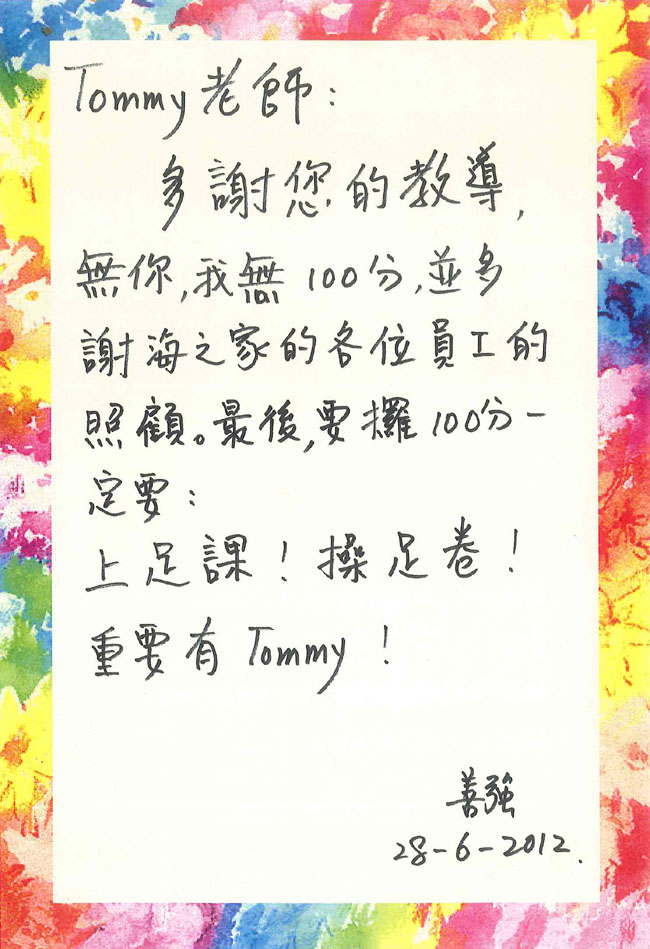 Tommy 老師：
多謝您的教導，
無你，我無 100分，並多
謝海之家的各位員工的
照顧。最後，要攞 100分一
定要：
上足課！操足卷！
重要有 Tommy！
善強
28-6-2012.